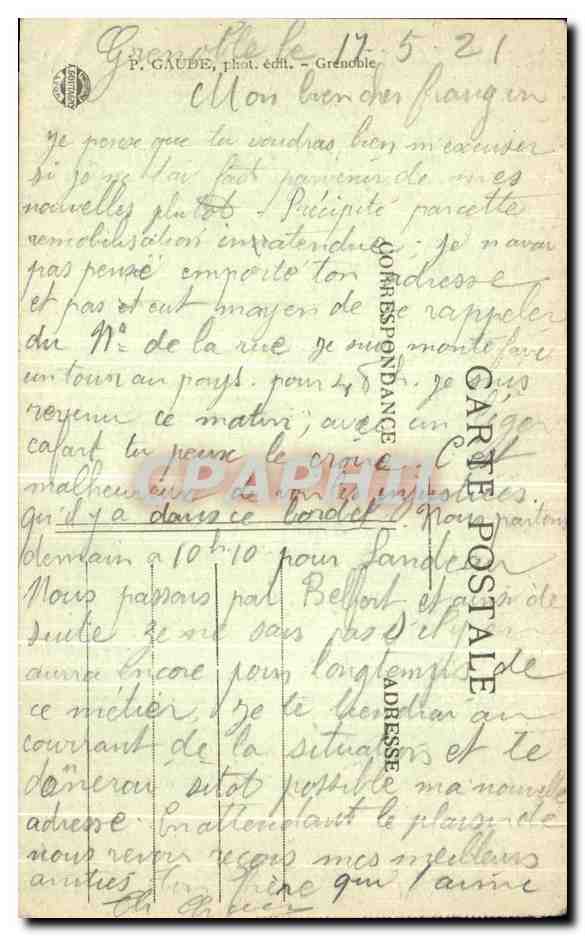 Grenoble le 17.5.21
P. GAUDE, phot. édit. - Grenoble
Mon bien cher frangin
Je pense que tu voudras bien m'excuser
si je ne t'ai fait parvenir de mes
nouvelles plutot. Précipité par cette
remobilisation inatendue; je n'avai
pas pensé emporté ton adresse
et pas eut moyen de se rappeler
du N° de la rue je suis monte faire
un tour au pays. pour 48 h. je suis
revenu ce matin, avec un léger
cafart tu peux le croire. C'est
malheureux de voir injustices
qu'il y a dans ce bordel. Nous partons
demain a 10h.10 pour Landau
Nous passons par Belfort et ainsi de
suite Je ne sais pas s'il y en
aura encore pour longtemps de
ce métier, Je te tiendrai au
courrant de la situation et te
donnerai sitot possible ma nouvelle
adresse. En attendant le plaisir de
nous revoir reçois mes meilleurs
amities Ton frère qui t'aime
CARTE POSTALE
CORRESPONDANCE
ADRESSE
CPAPHIL